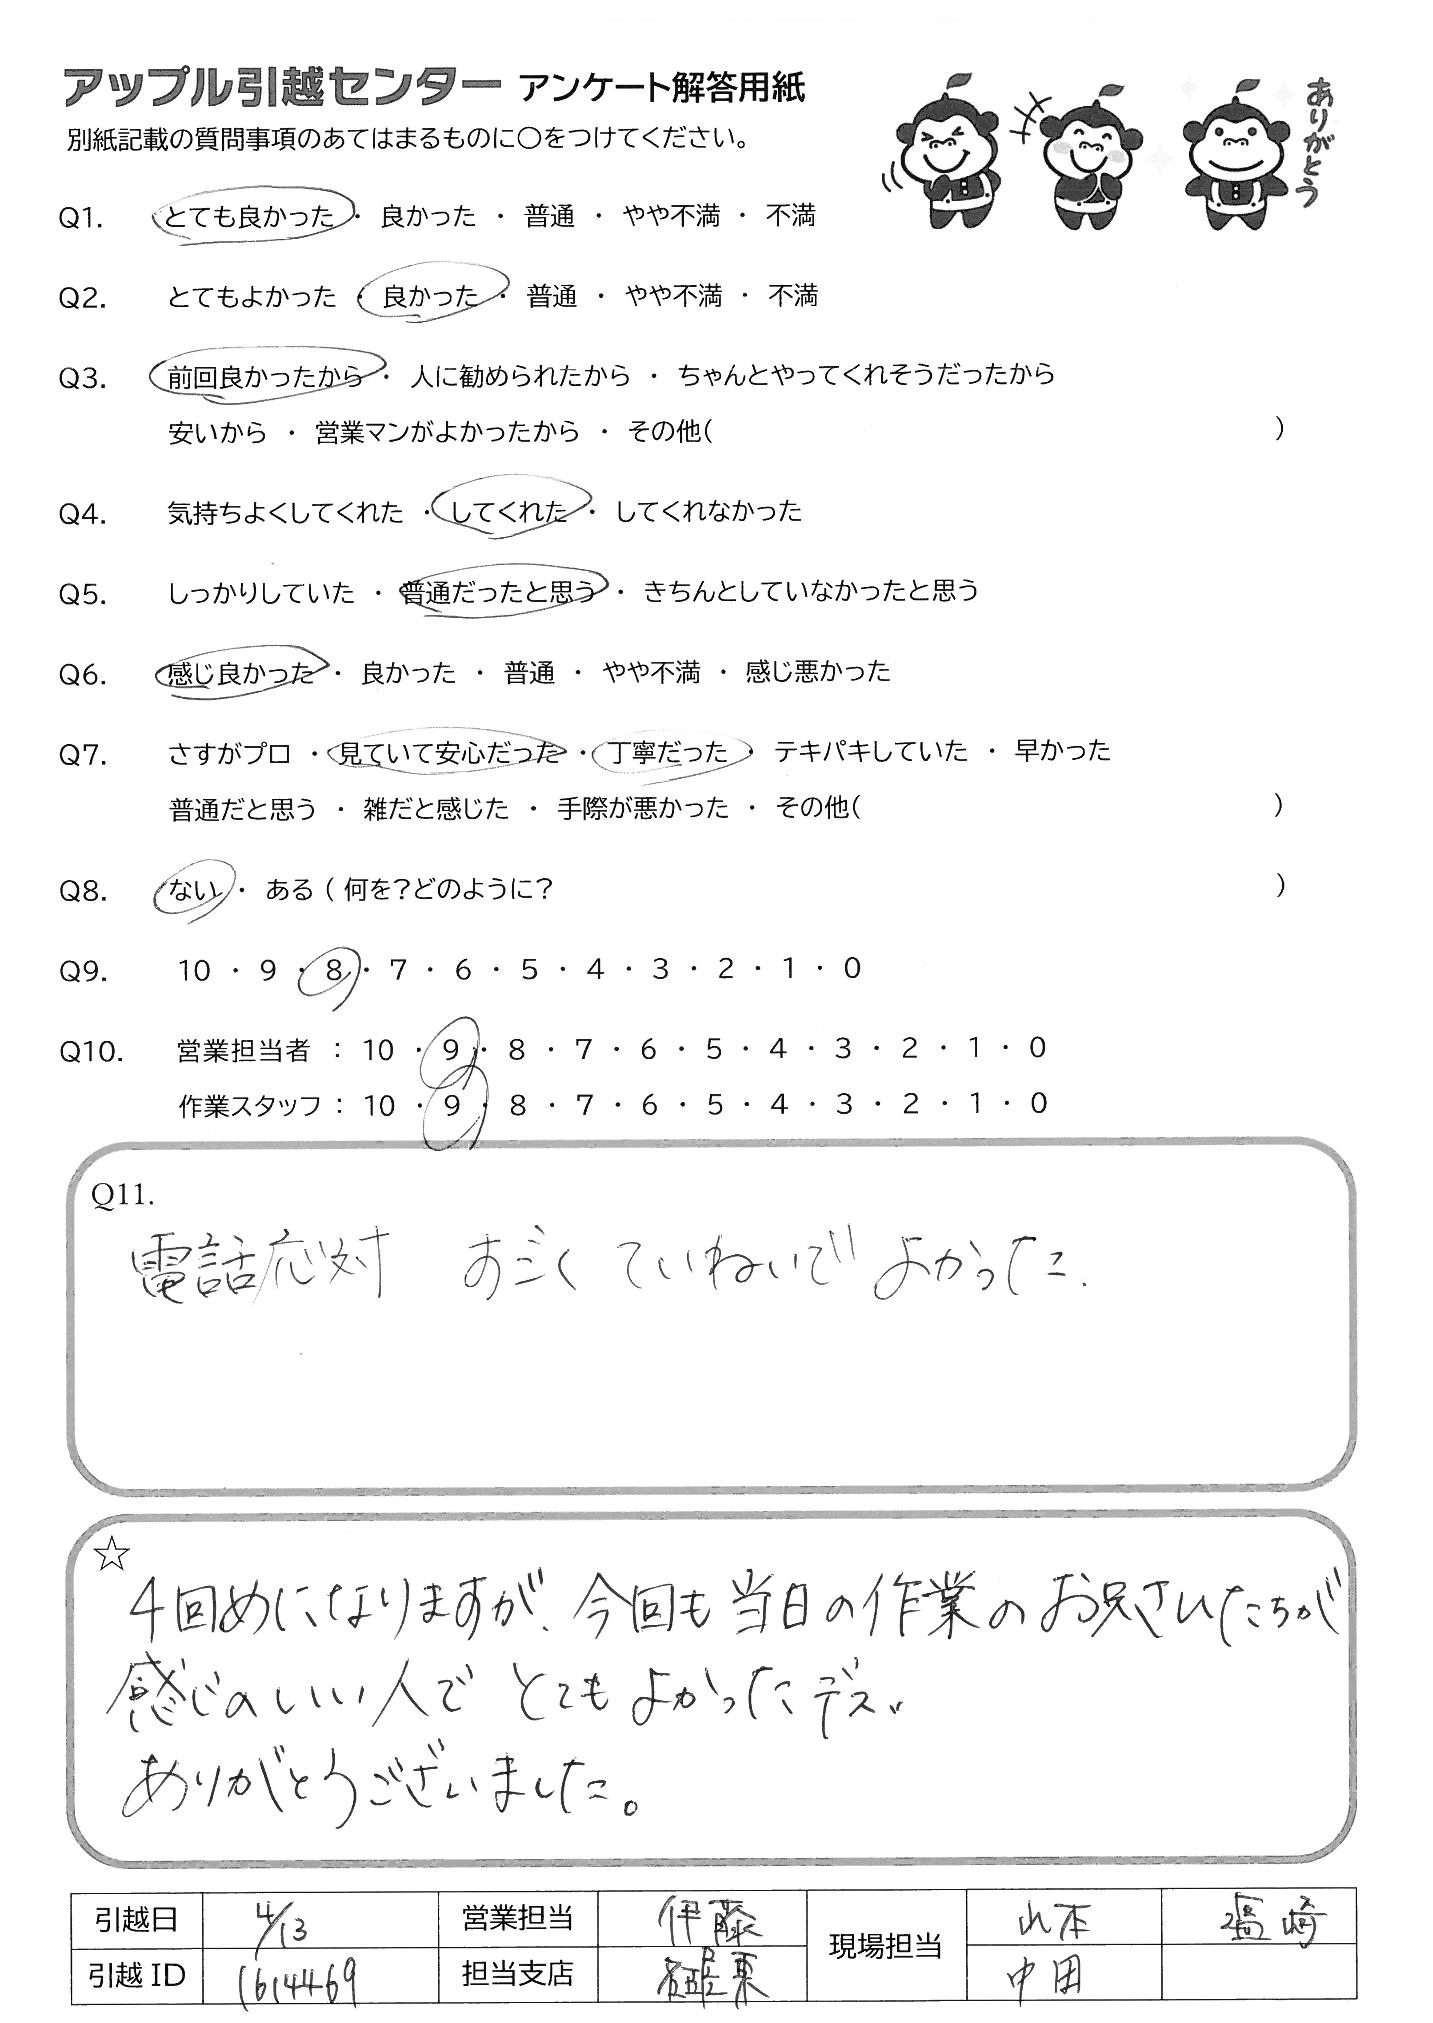 アップル引越センター アンケート解答用紙
別紙記載の質問事項のあてはまるものに○をつけてください。
ありがとう
Q1. とても良かった ・ 良かった ・ 普通 ・ やや不満 ・ 不満
Q2. とてもよかった ・ 良かった ・ 普通 ・ やや不満 ・ 不満
Q3. 前回良かったから ・ 人に勧められたから ・ ちゃんとやってくれそうだったから
安いから ・ 営業マンがよかったから ・ その他( )
Q4. 気持ちよくしてくれた ・ してくれた ・ してくれなかった
Q5. しっかりしていた ・ 普通だったと思う ・ きちんとしていなかったと思う
Q6. 感じ良かった ・ 良かった ・ 普通 ・ やや不満 ・ 感じ悪かった
Q7. さすがプロ ・ 見ていて安心だった ・ 丁寧だった ・ テキパキしていた ・ 早かった
普通だと思う ・ 雑だと感じた ・ 手際が悪かった ・ その他( )
Q8. ない ・ ある ( 何を?どのように? )
Q9. 10 ・ 9 ・ 8 ・ 7 ・ 6 ・ 5 ・ 4 ・ 3 ・ 2 ・ 1 ・ 0
Q10. 営業担当者 : 10 ・ 9 ・ 8 ・ 7 ・ 6 ・ 5 ・ 4 ・ 3 ・ 2 ・ 1 ・ 0
作業スタッフ : 10 ・ 9 ・ 8 ・ 7 ・ 6 ・ 5 ・ 4 ・ 3 ・ 2 ・ 1 ・ 0
Q11.
電話応対 すごく ていねいで よかった.
☆
4回めになりますが、今回も当日の作業のお兄さんたちが
感じのいい人で とてもよかったデス。
ありがとうございました。
引越日 4/13 営業担当 伊藤 現場担当 山本 塩崎
引越ID 1614469 担当支店 中田